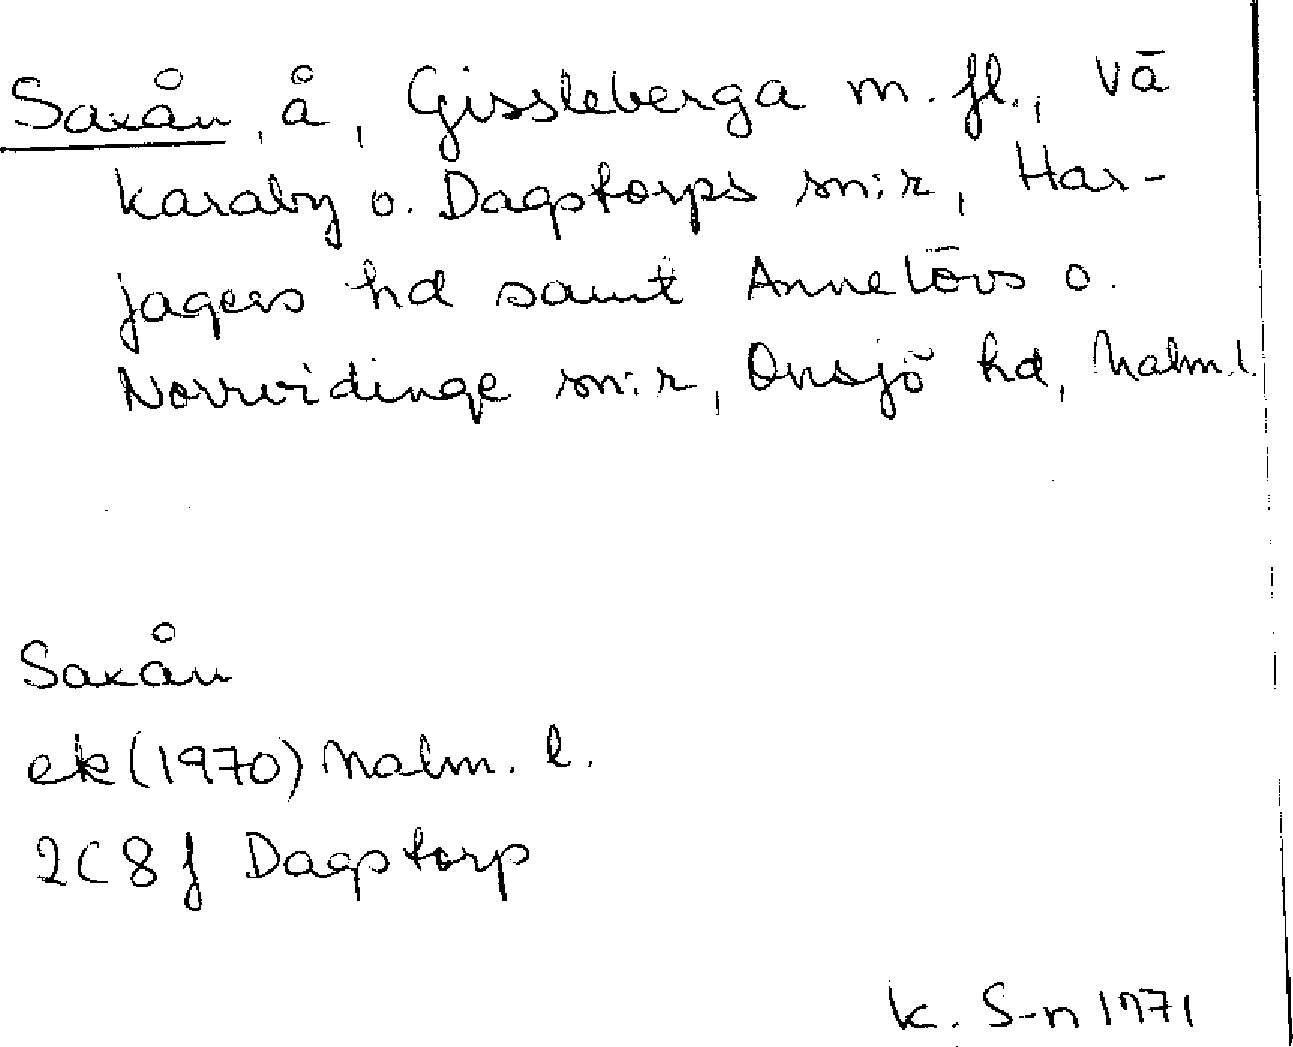 Saxån, å, Gissleberga m. fl., Vä
karaby o. Dagstorps sn:r, Har-
jagers hd samt Annelövs o.
Norrvidinge sn:r, Onsjö hd, Malm. l.
Saxån
ek (1970) Malm. l.
2C 8f Dagstorp
K. S-n 1971